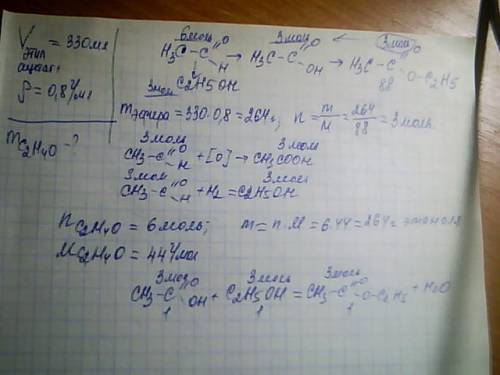 V этил ацетат = 330 мл
ρ = 0,8 г/мл
m C2H4O - ?
6 моль 3 моль ← 3 моль
H3C-C=O H → H3C-C=O OH → H3C-C=O O-C2H5
3 моль C2H5OH 88
m эфира = 330·0,8 = 264 г; n = m/M = 264/88 = 3 моль
3 моль 3 моль
CH3-C=O H + [O] → CH3COOH
3 моль 3 моль
CH3-C=O H + H2 = C2H5OH
n C2H4O = 6 моль; m = n·M = 6·44 = 264 г этаналя
M C2H4O = 44 г/моль
3 моль 3 моль 3 моль
CH3-C=O OH + C2H5OH = CH3-C=O O-C2H5 + H2O
1 1 1